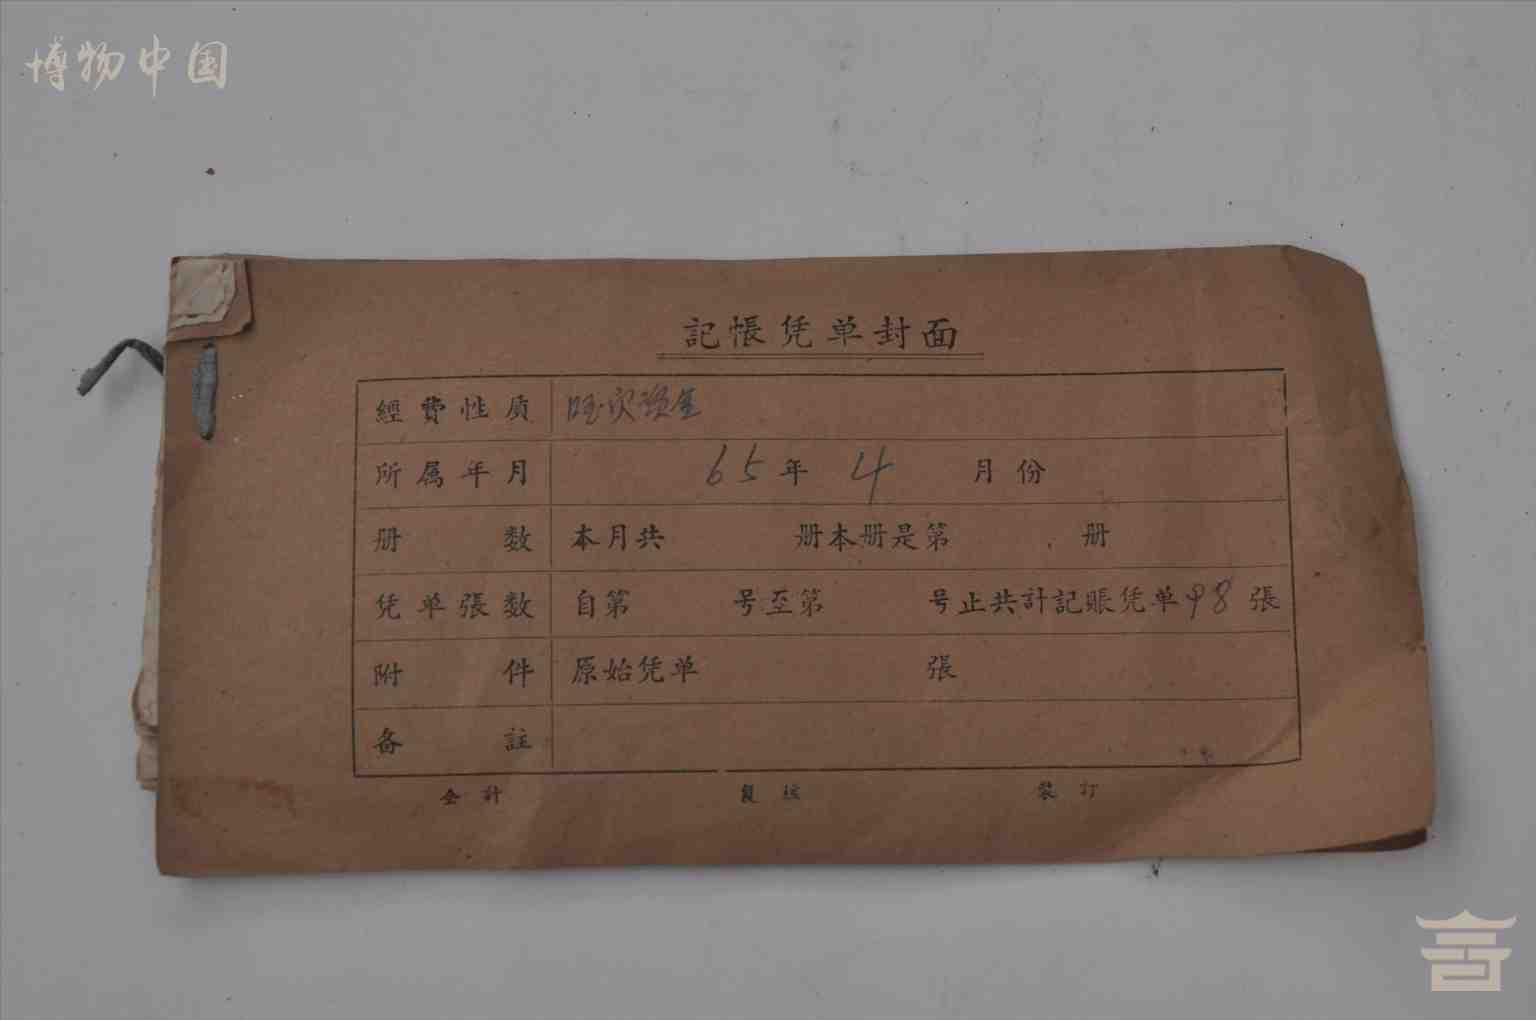 博物中国
記帳凭单封面
經費性质
所属年月 65年 4 月份
册数 本月共 册本册是第 册
凭单張数 自第 号至第 号止共計記賬凭单98張
附件 原始凭单 張
备註
会計 复核 装订